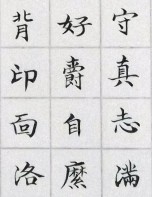 守真志滿
好爵自縻
背印面洛